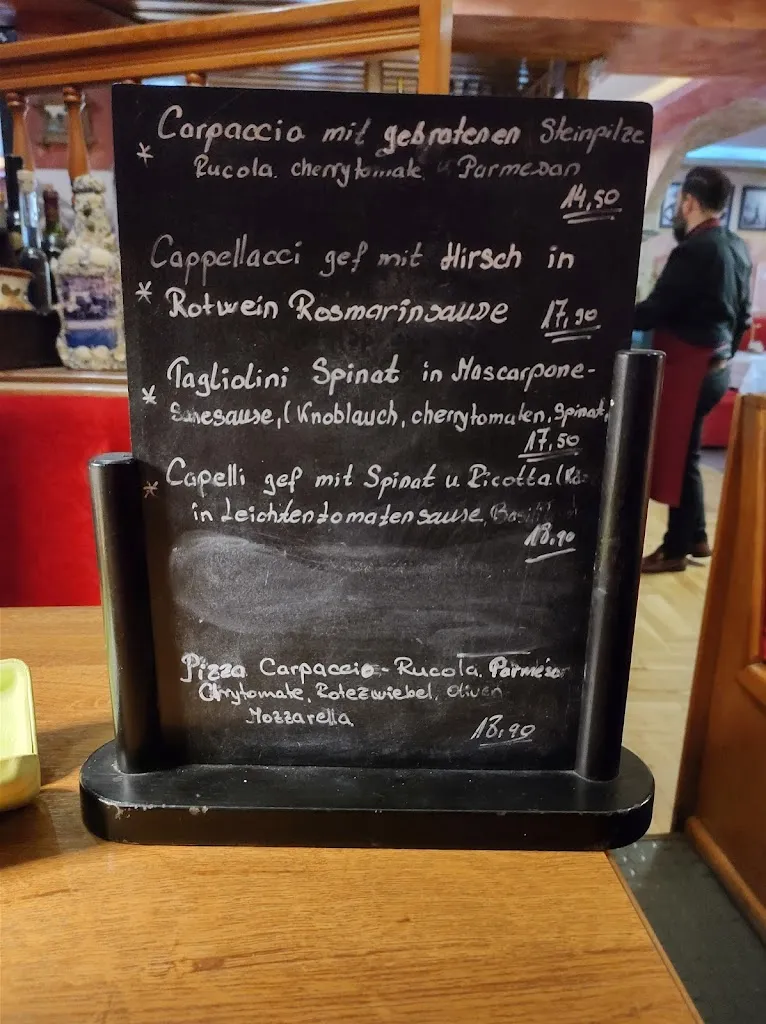 Carpaccio mit gebratenen Steinpilze
* Rucola. cherrytomate u Parmesan
14,50
Cappellacci gef mit Hirsch in
* Rotwein Rosmarinsause 17,90
Tagliolini Spinat in Mascarpone-
* Sanesause, (Knoblauch, cherrytomaten, Spinat,
17,50
* Capelli gef mit Spinat u Ricotta
in Leichtentomatensause,
18,90
Pizza Carpaccio - Rucola. Parmesan
Chrytomate, Rotezwiebel, Oliven
Mozzarella
18,90